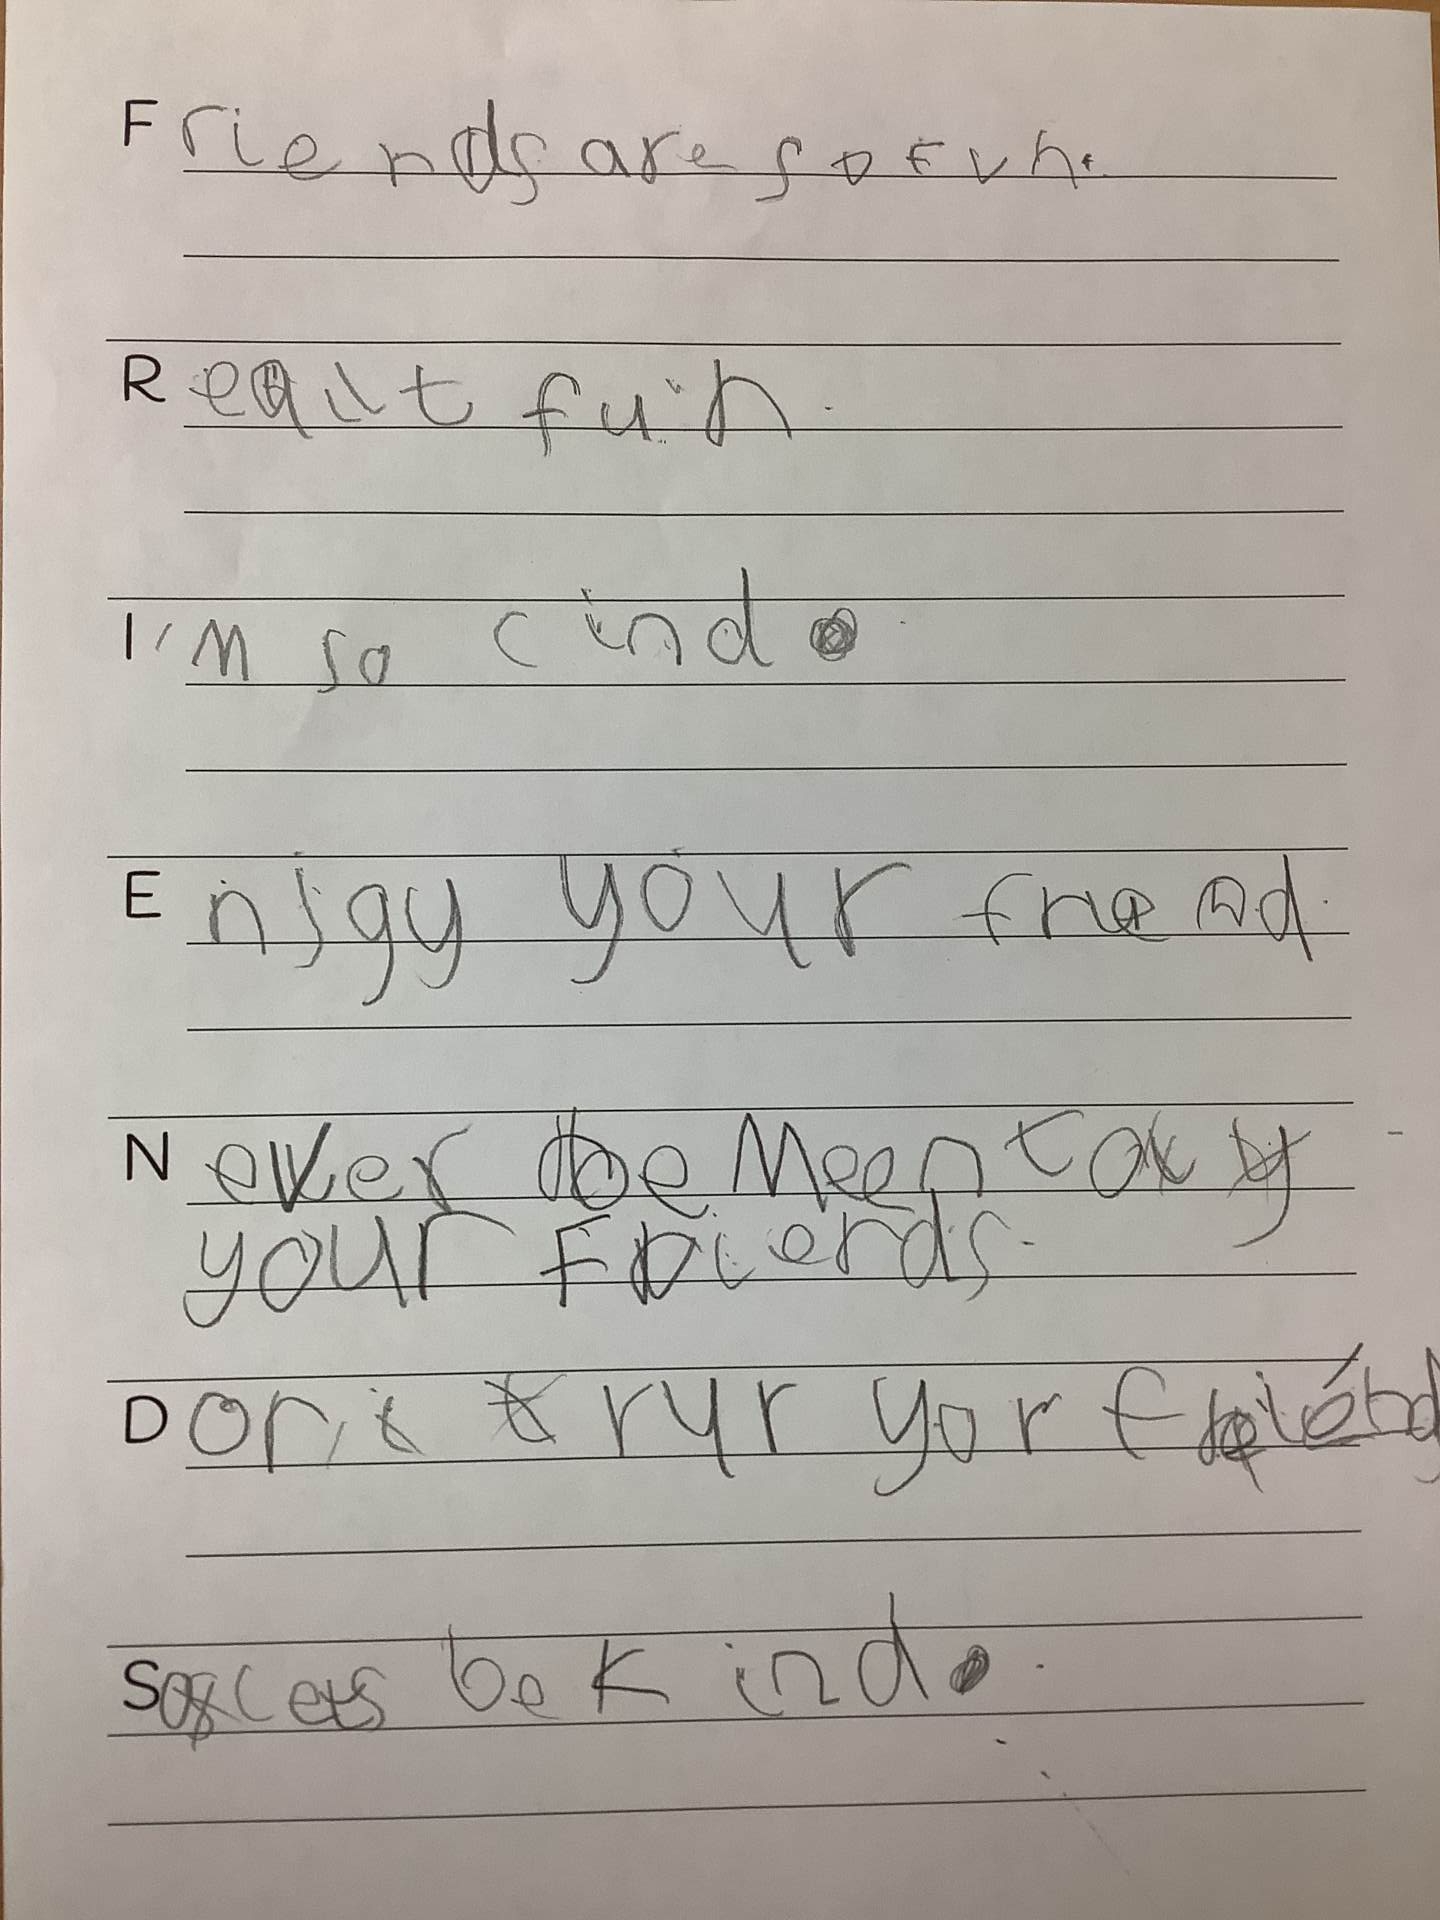 Friends are so fun.
Realt fun.
I'm so cind.
Enjoy your friend.
Never be Meen to
your Friends.
Don't tryr yor friend
be kind.